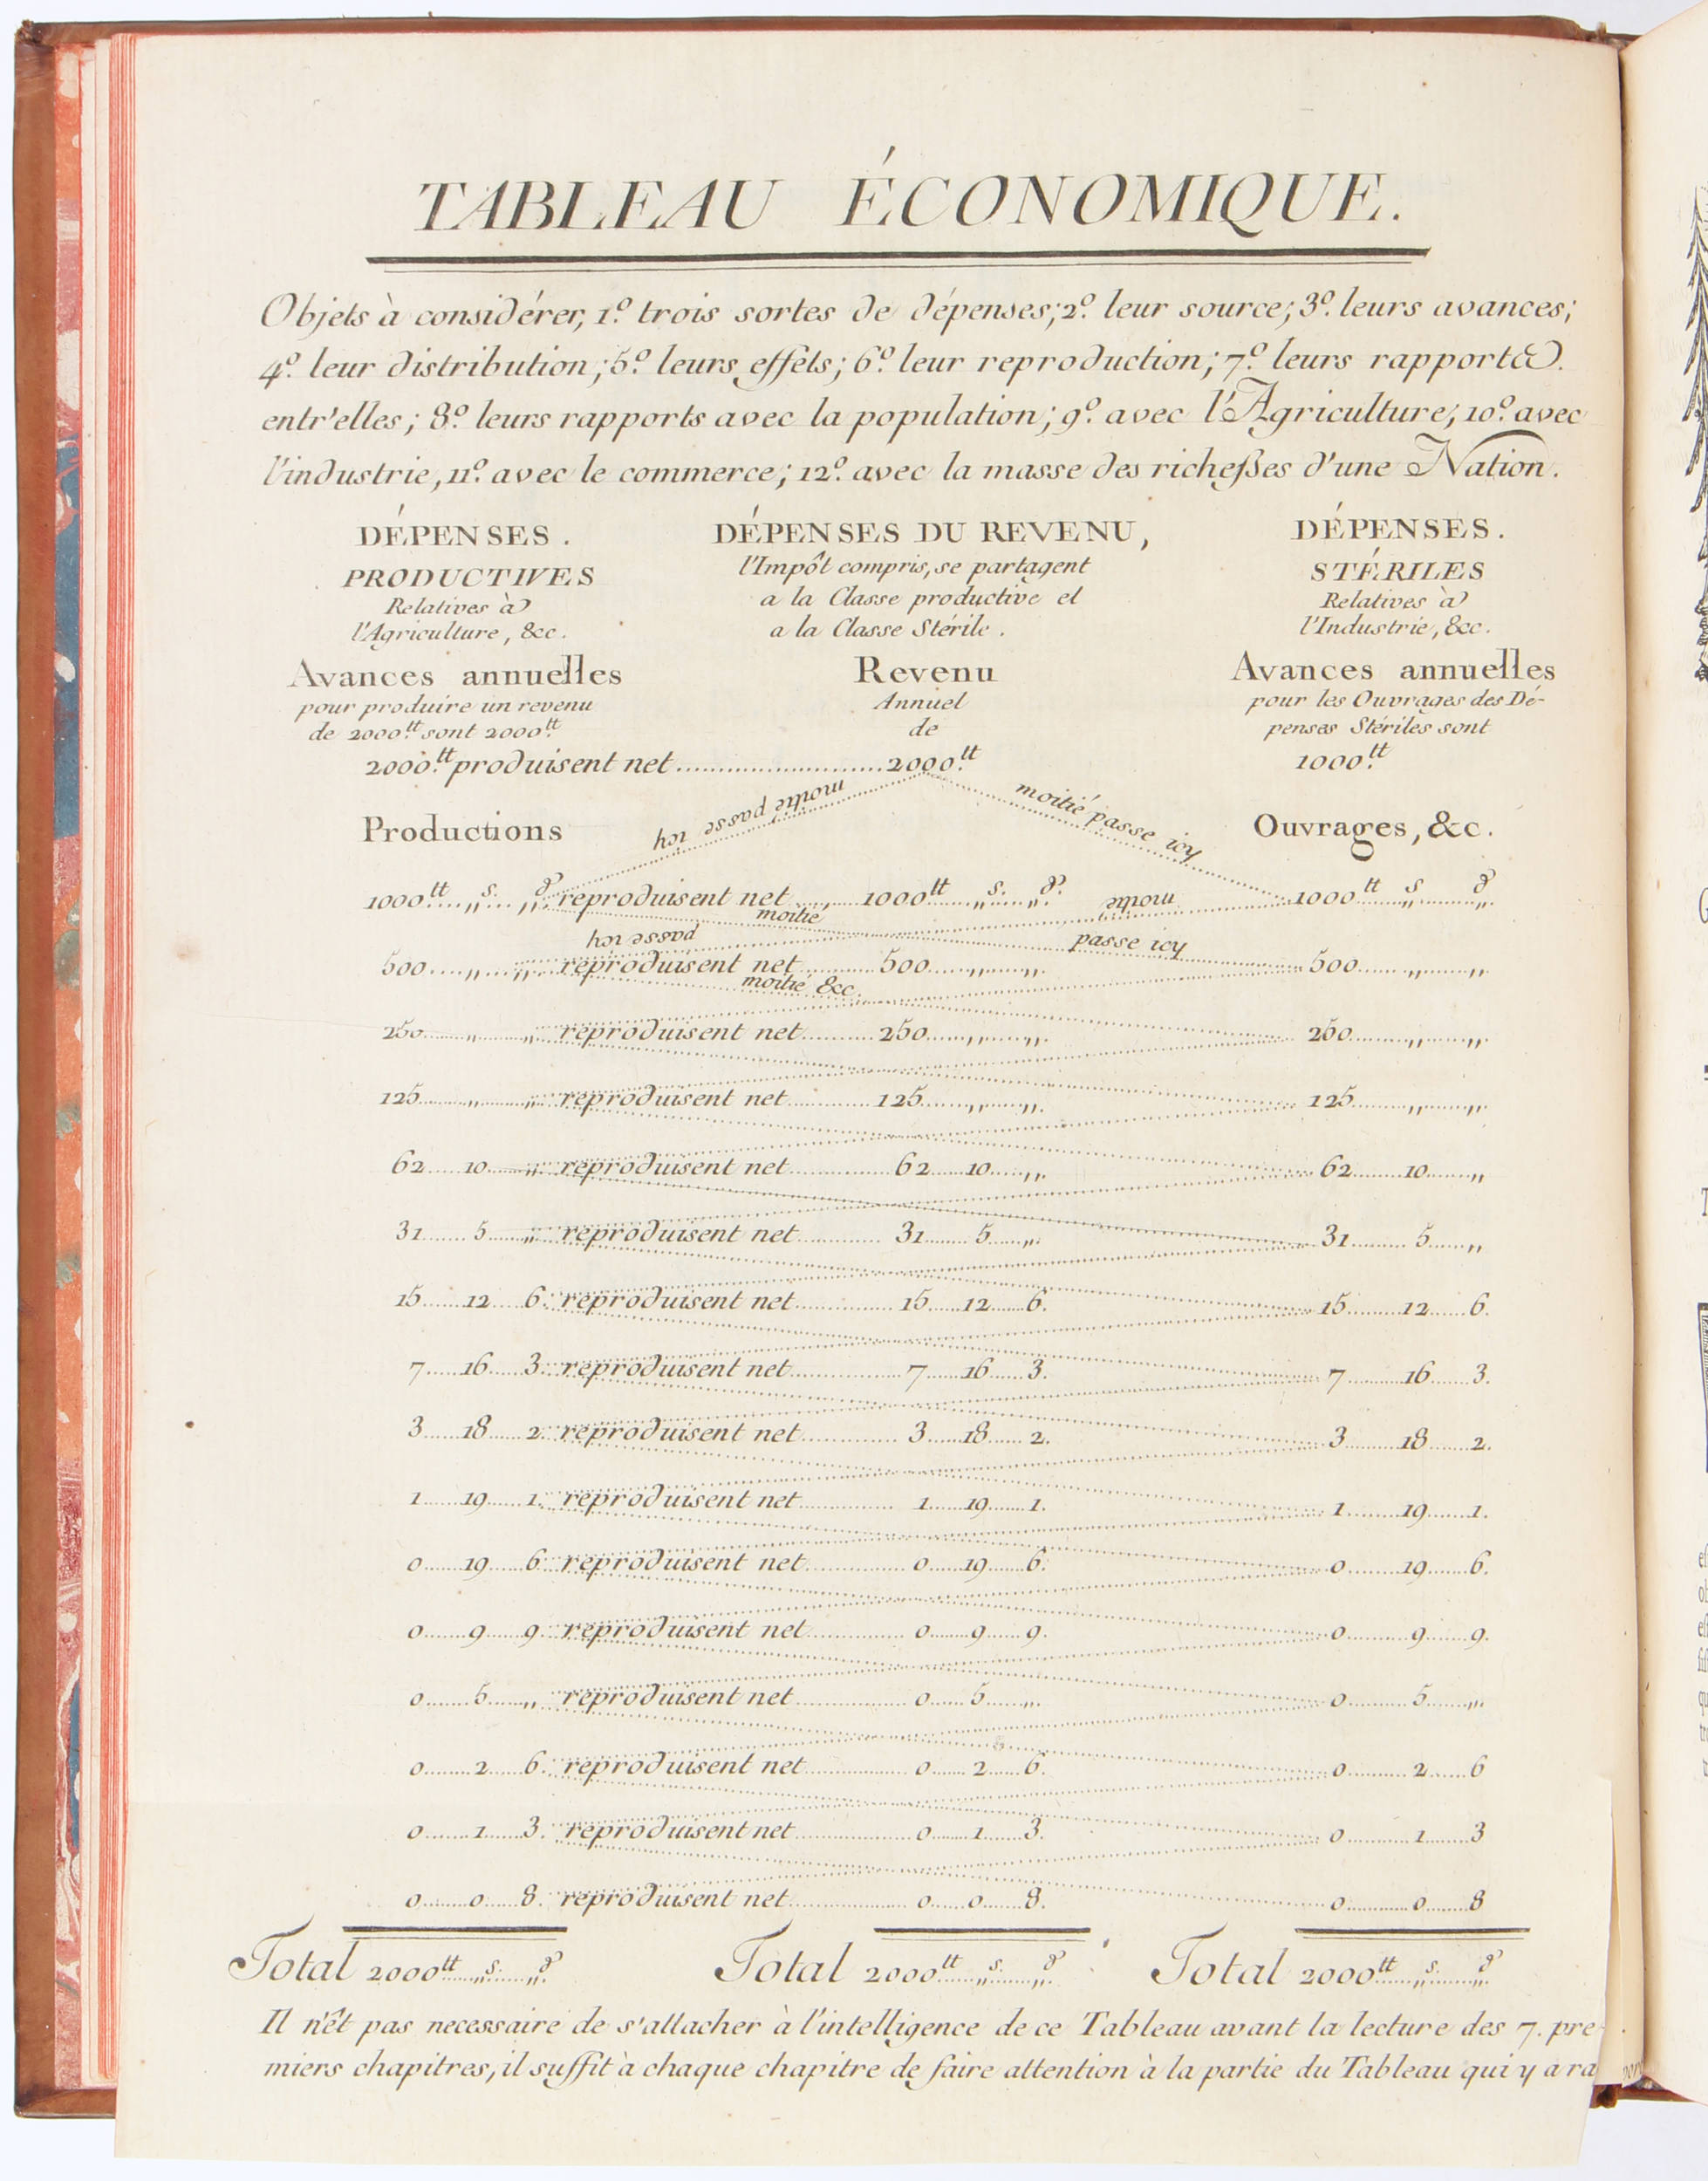 TABLEAU ÉCONOMIQUE.
Objets à considérer, 1.º trois sortes de dépenses; 2.º leur source; 3.º leurs avances;
4.º leur distribution; 5.º leurs effets; 6.º leur reproduction; 7.º leurs rapports
entr'elles; 8.º leurs rapports avec la population; 9.º avec l'Agriculture; 10.º avec
l'industrie, 11.º avec le commerce; 12.º avec la masse des richeßes d'une Nation.
DÉPENSES.
PRODUCTIVES
Relatives à
l'Agriculture, &c.
Avances annuelles
pour produire un revenu
de 2000.tt sont 2000.tt
DÉPENSES DU REVENU,
l'Impôt compris, se partagent
a la Classe productive et
a la Classe Stérile.
Revenu
Annuel
de
DÉPENSES.
STÉRILES
Relatives à
l'Industrie, &c.
Avances annuelles
pour les Ouvrages des Dé-
penses Stériles sont
2000.tt produisent net..........2000.tt 1000.tt
moitié passe icy moitié passe icy
Productions Ouvrages, &c.
1000tt....„s....„d. reproduisent net......1000tt....„s....„d. 1000tt....„s....„d.
moitié moitié
passe icy passe icy
500....„....„ reproduisent net......500....„....„ 500....„....„
moitié &c.
250....„....„ reproduisent net......250....„....„ 250....„....„
125....„....„ reproduisent net......125....„....„ 125....„....„
62....10....„ reproduisent net......62....10....„ 62....10....„
31....5....„ reproduisent net......31....5....„ 31....5....„
15....12....6. reproduisent net......15....12....6. 15....12....6.
7....16....3. reproduisent net......7....16....3. 7....16....3.
3....18....2. reproduisent net......3....18....2. 3....18....2.
1....19....1. reproduisent net......1....19....1. 1....19....1.
0....19....6. reproduisent net......0....19....6. 0....19....6.
0....9....9. reproduisent net......0....9....9. 0....9....9.
0....5....„ reproduisent net......0....5....„ 0....5....„
0....2....6. reproduisent net......0....2....6. 0....2....6
0....1....3. reproduisent net......0....1....3. 0....1....3
0....0....8. reproduisent net......0....0....8. 0....0....8
Total 2000tt....„s....„d. Total 2000tt....„s....„d. Total 2000tt....„s....„d.
Il n'êt pas necessaire de s'attacher à l'intelligence de ce Tableau avant la lecture des 7. pre-
miers chapitres, il suffit à chaque chapitre de faire attention à la partie du Tableau qui y a ra